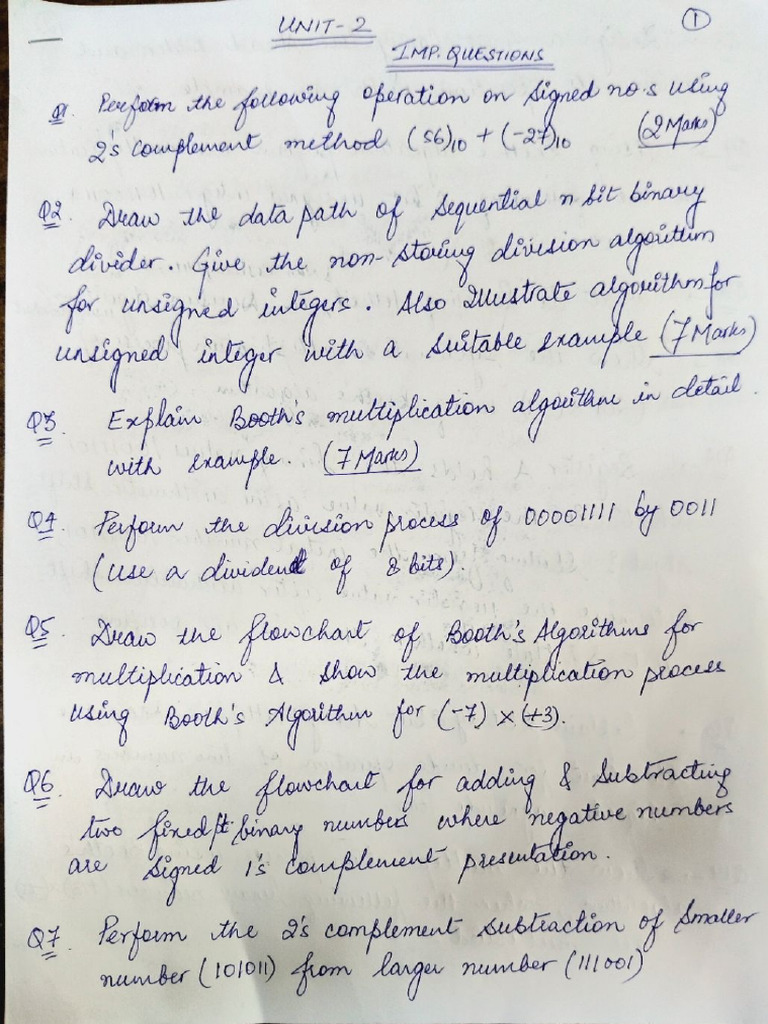 ①
UNIT-2
IMP. QUESTIONS
Q1. Perform the following operation on signed no.s using
2's complement method (56)₁₀ + (-27)₁₀ (2 Marks)
Q2. Draw the data path of Sequential n bit binary
divider. Give the non-storing division algorithm
for unsigned integers. Also Illustrate algorithm for
unsigned integer with a suitable example (7 Marks)
Q3. Explain Booth's multiplication algorithm in detail.
with example. (7 Marks)
Q4. Perform the division process of 00001111 by 0011
(use a dividend of 8 bits).
Q5. Draw the flowchart of Booth's Algorithms for
multiplication & show the multiplication process
using Booth's Algorithm for (-7) × (+3).
Q6. Draw the flowchart for adding & Subtracting
two fixed pt binary numbers where negative numbers
are signed 1's complement presentation.
Q7. Perform the 2's complement subtraction of smaller
number (101011) from larger number (111001)